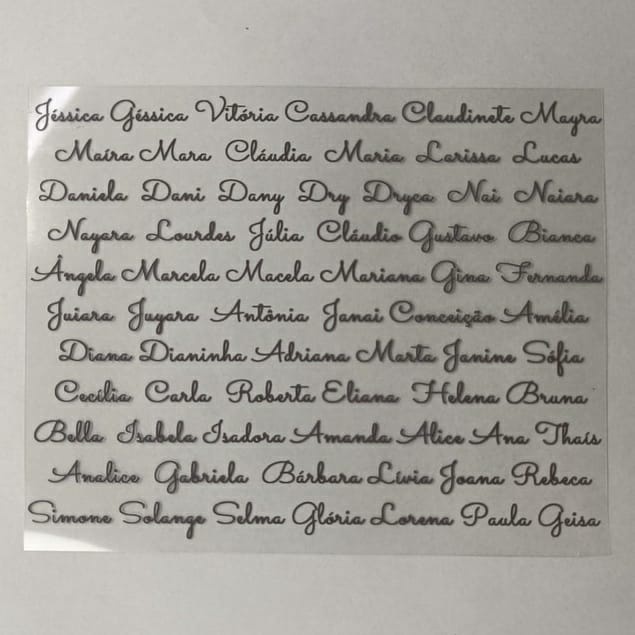 Jéssica Géssica Vitória Cassandra Claudinete Mayra
Maíra Mara Cláudia Maria Larissa Lucas
Daniela Dani Dany Dry Dryca Nai Naiara
Nayara Lourdes Júlia Cláudio Gustavo Bianca
Ângela Marcela Macela Mariana Gina Fernanda
Juiara Juyara Antônia Janai Conceição Amélia
Diana Dianinha Adriana Marta Janine Sófia
Cecília Carla Roberta Eliana Helena Bruna
Bella Isabela Isadora Amanda Alice Ana Thaís
Analice Gabriela Bárbara Lívia Joana Rebeca
Simone Solange Selma Glória Lorena Paula Geisa